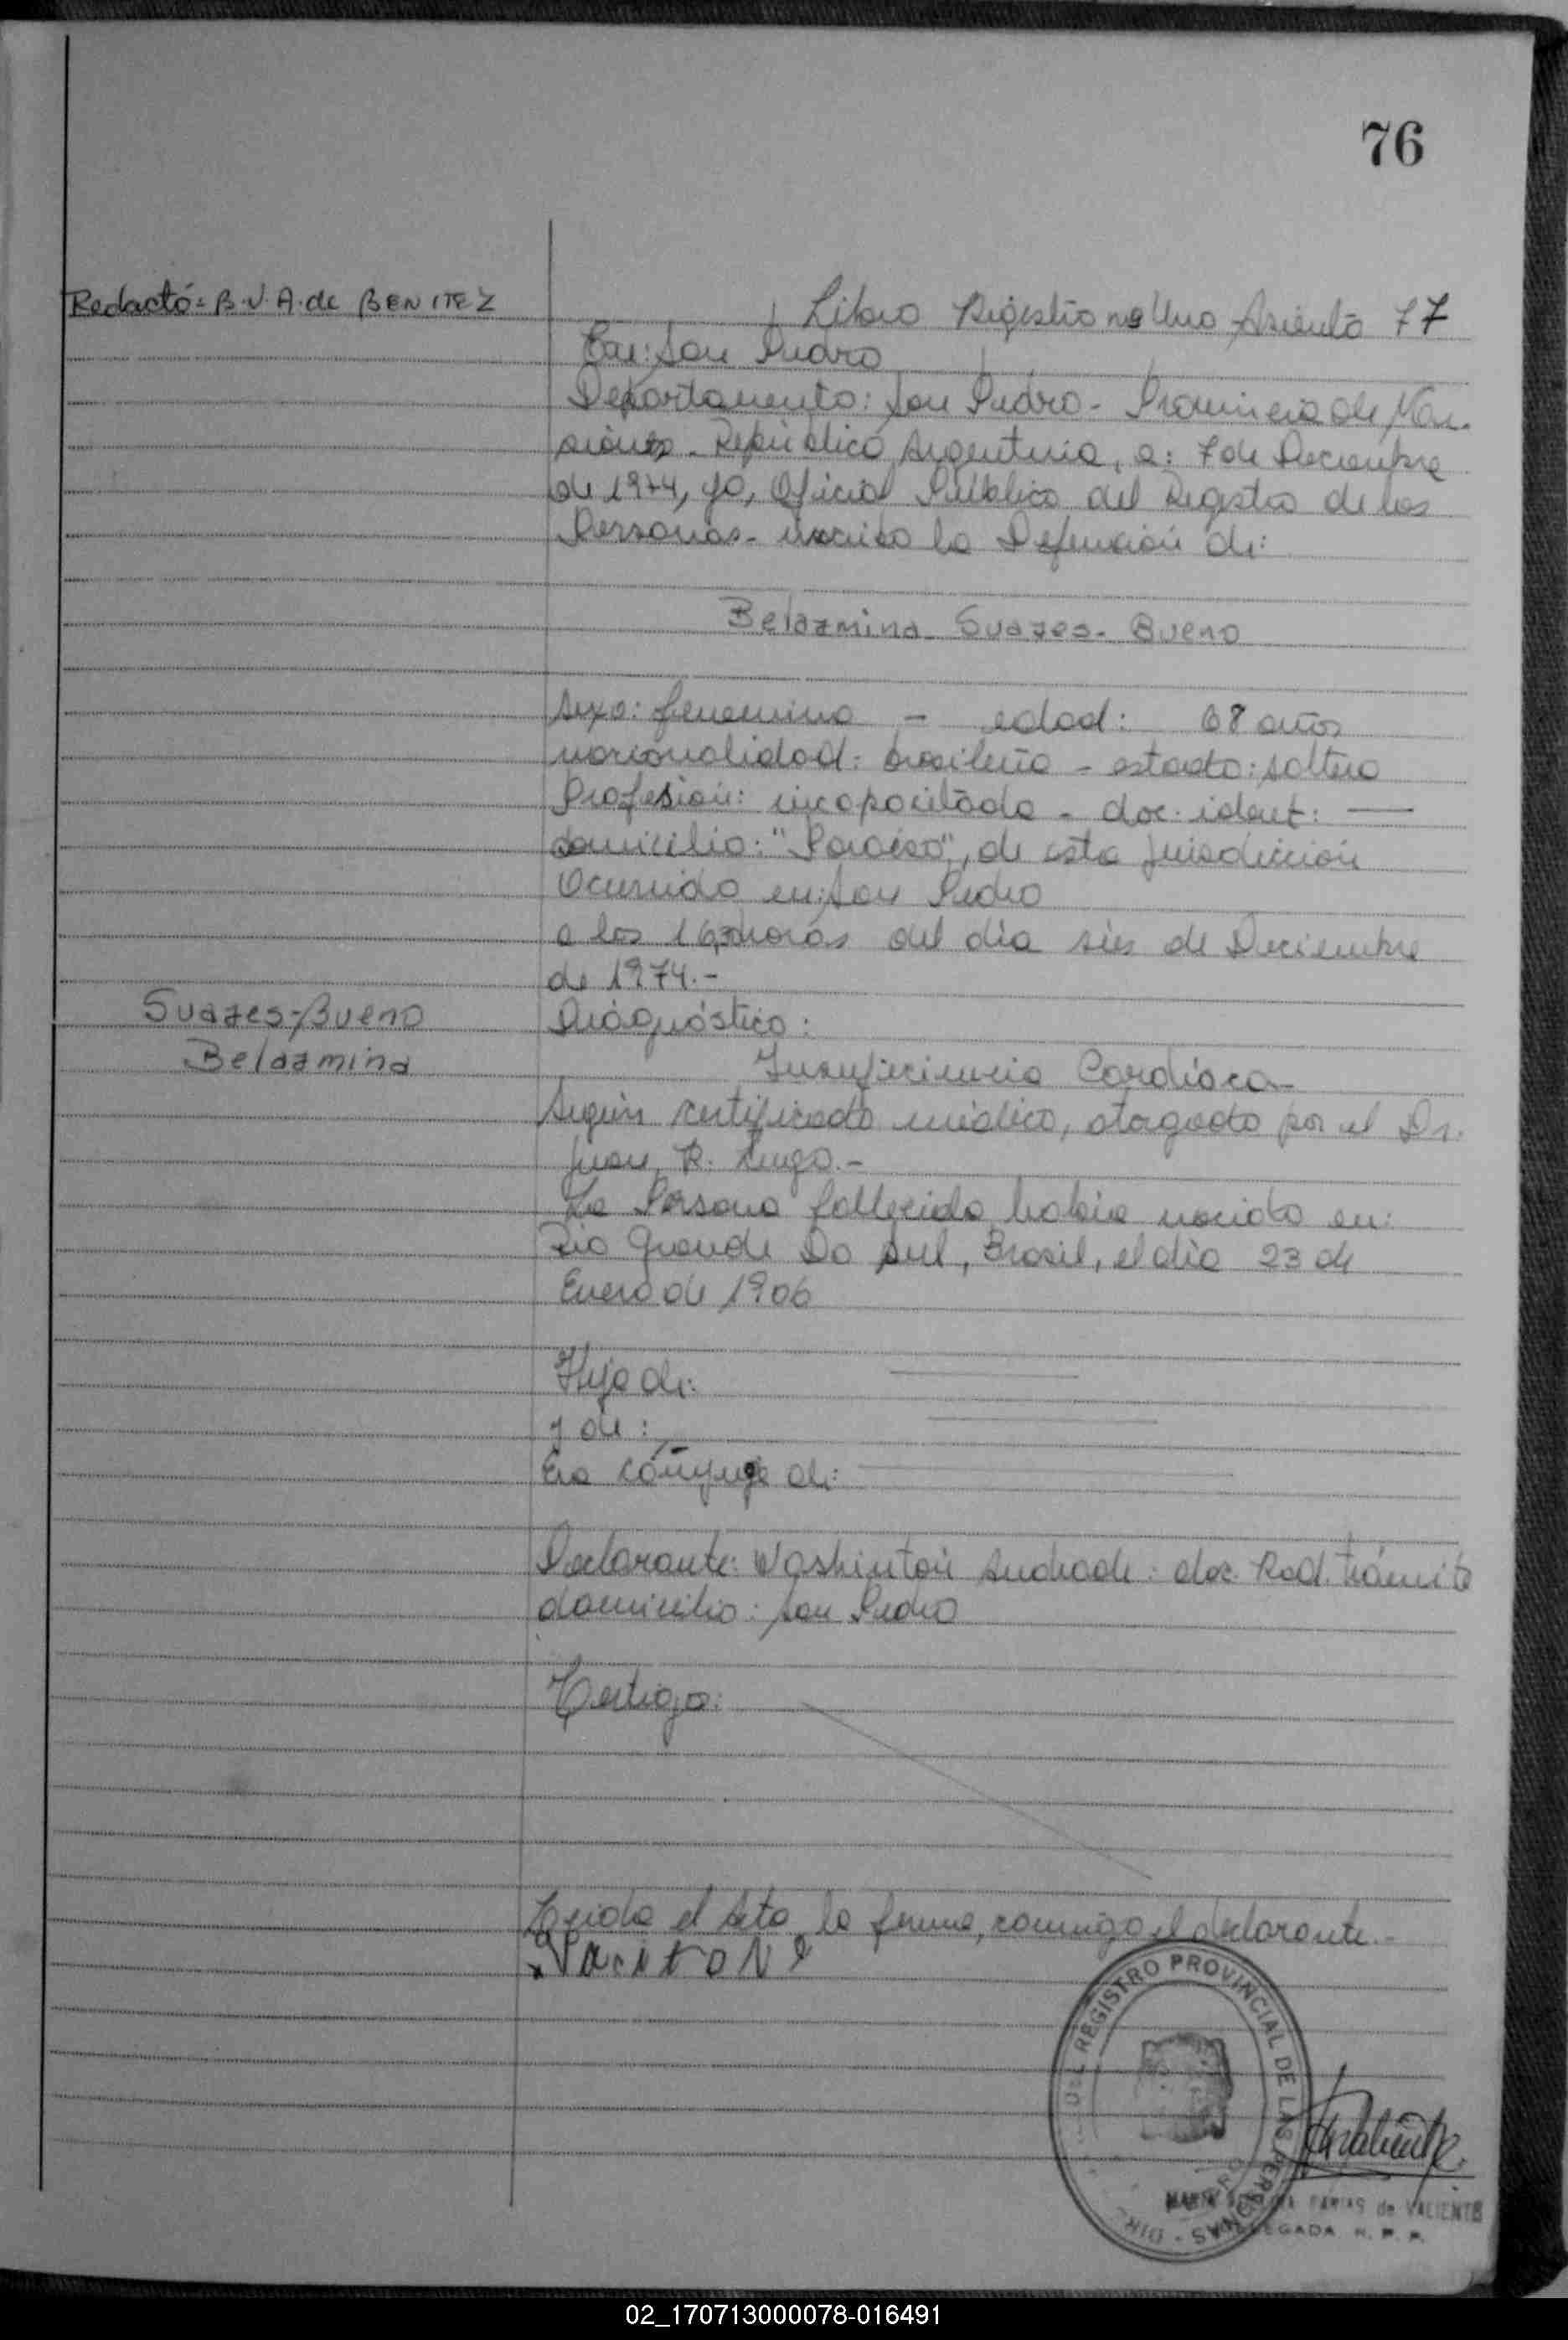 76
Redactó: B.V.A. de BENITEZ
Libro Registro nº Uno Asiento 77
En: San Pedro
Departamento: San Pedro - Provincia de Mi-
siones - República Argentina, a: 7 de Deciembre
de 1974, yo, Oficial Público del Registro de las
Personas - inscribo la Defunción de:
Belarmina Suares - Bueno
sexo: femenino - edad: 68 años
nacionalidad: brasileña - estado: soltera
Profesión: incapacitada - doc. ident: —
domicilio: "Paraíso", de esta jurisdicción
Ocurrida en: San Pedro
a las 16,30 horas del día sies de Deciembre
de 1974.-
Suares-Bueno
Belarmina
Diágnóstico:
Insuficiencia Cardíaca-
según certificado médico, otorgado por el Dr.
Juan R. Lugo.-
La Persona fallecida había nacido en:
Rio Grande Do Sul, Brasil, el día 23 de
Enero de 1906
Hija de:
y de:
Era cónyuge de:
Declarante: Washintón Andrade: doc. Rad. trámite
domicilio: San Pedro
Testigo:
Leída el Acta la firma, conmigo el declarante.-
REGISTRO PROVINCIAL DE LAS PERSONAS - DIR
FARIAS de VALIENTE
DELEGADA R. P. P.
02_170713000078-016491